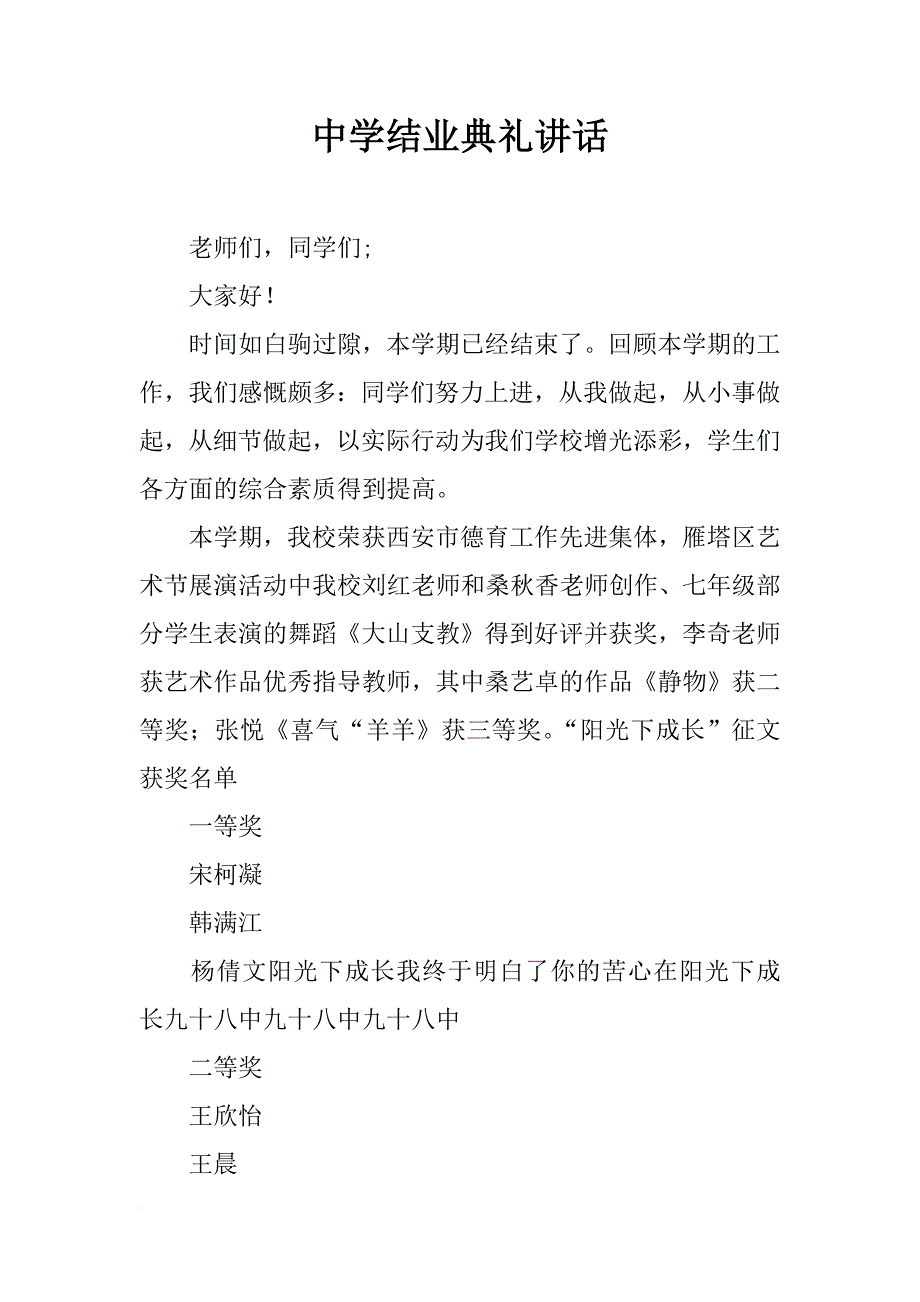 中学结业典礼讲话
老师们，同学们;
大家好！
时间如白驹过隙，本学期已经结束了。回顾本学期的工
作，我们感慨颇多：同学们努力上进，从我做起，从小事做
起，从细节做起，以实际行动为我们学校增光添彩，学生们
各方面的综合素质得到提高。
本学期，我校荣获西安市德育工作先进集体，雁塔区艺
术节展演活动中我校刘红老师和桑秋香老师创作、七年级部
分学生表演的舞蹈《大山支教》得到好评并获奖，李奇老师
获艺术作品优秀指导教师，其中桑艺卓的作品《静物》获二
等奖；张悦《喜气“羊羊》获三等奖。“阳光下成长”征文
获奖名单
一等奖
宋柯凝
韩满江
杨倩文阳光下成长我终于明白了你的苦心在阳光下成
长九十八中九十八中九十八中
二等奖
王欣怡
王晨